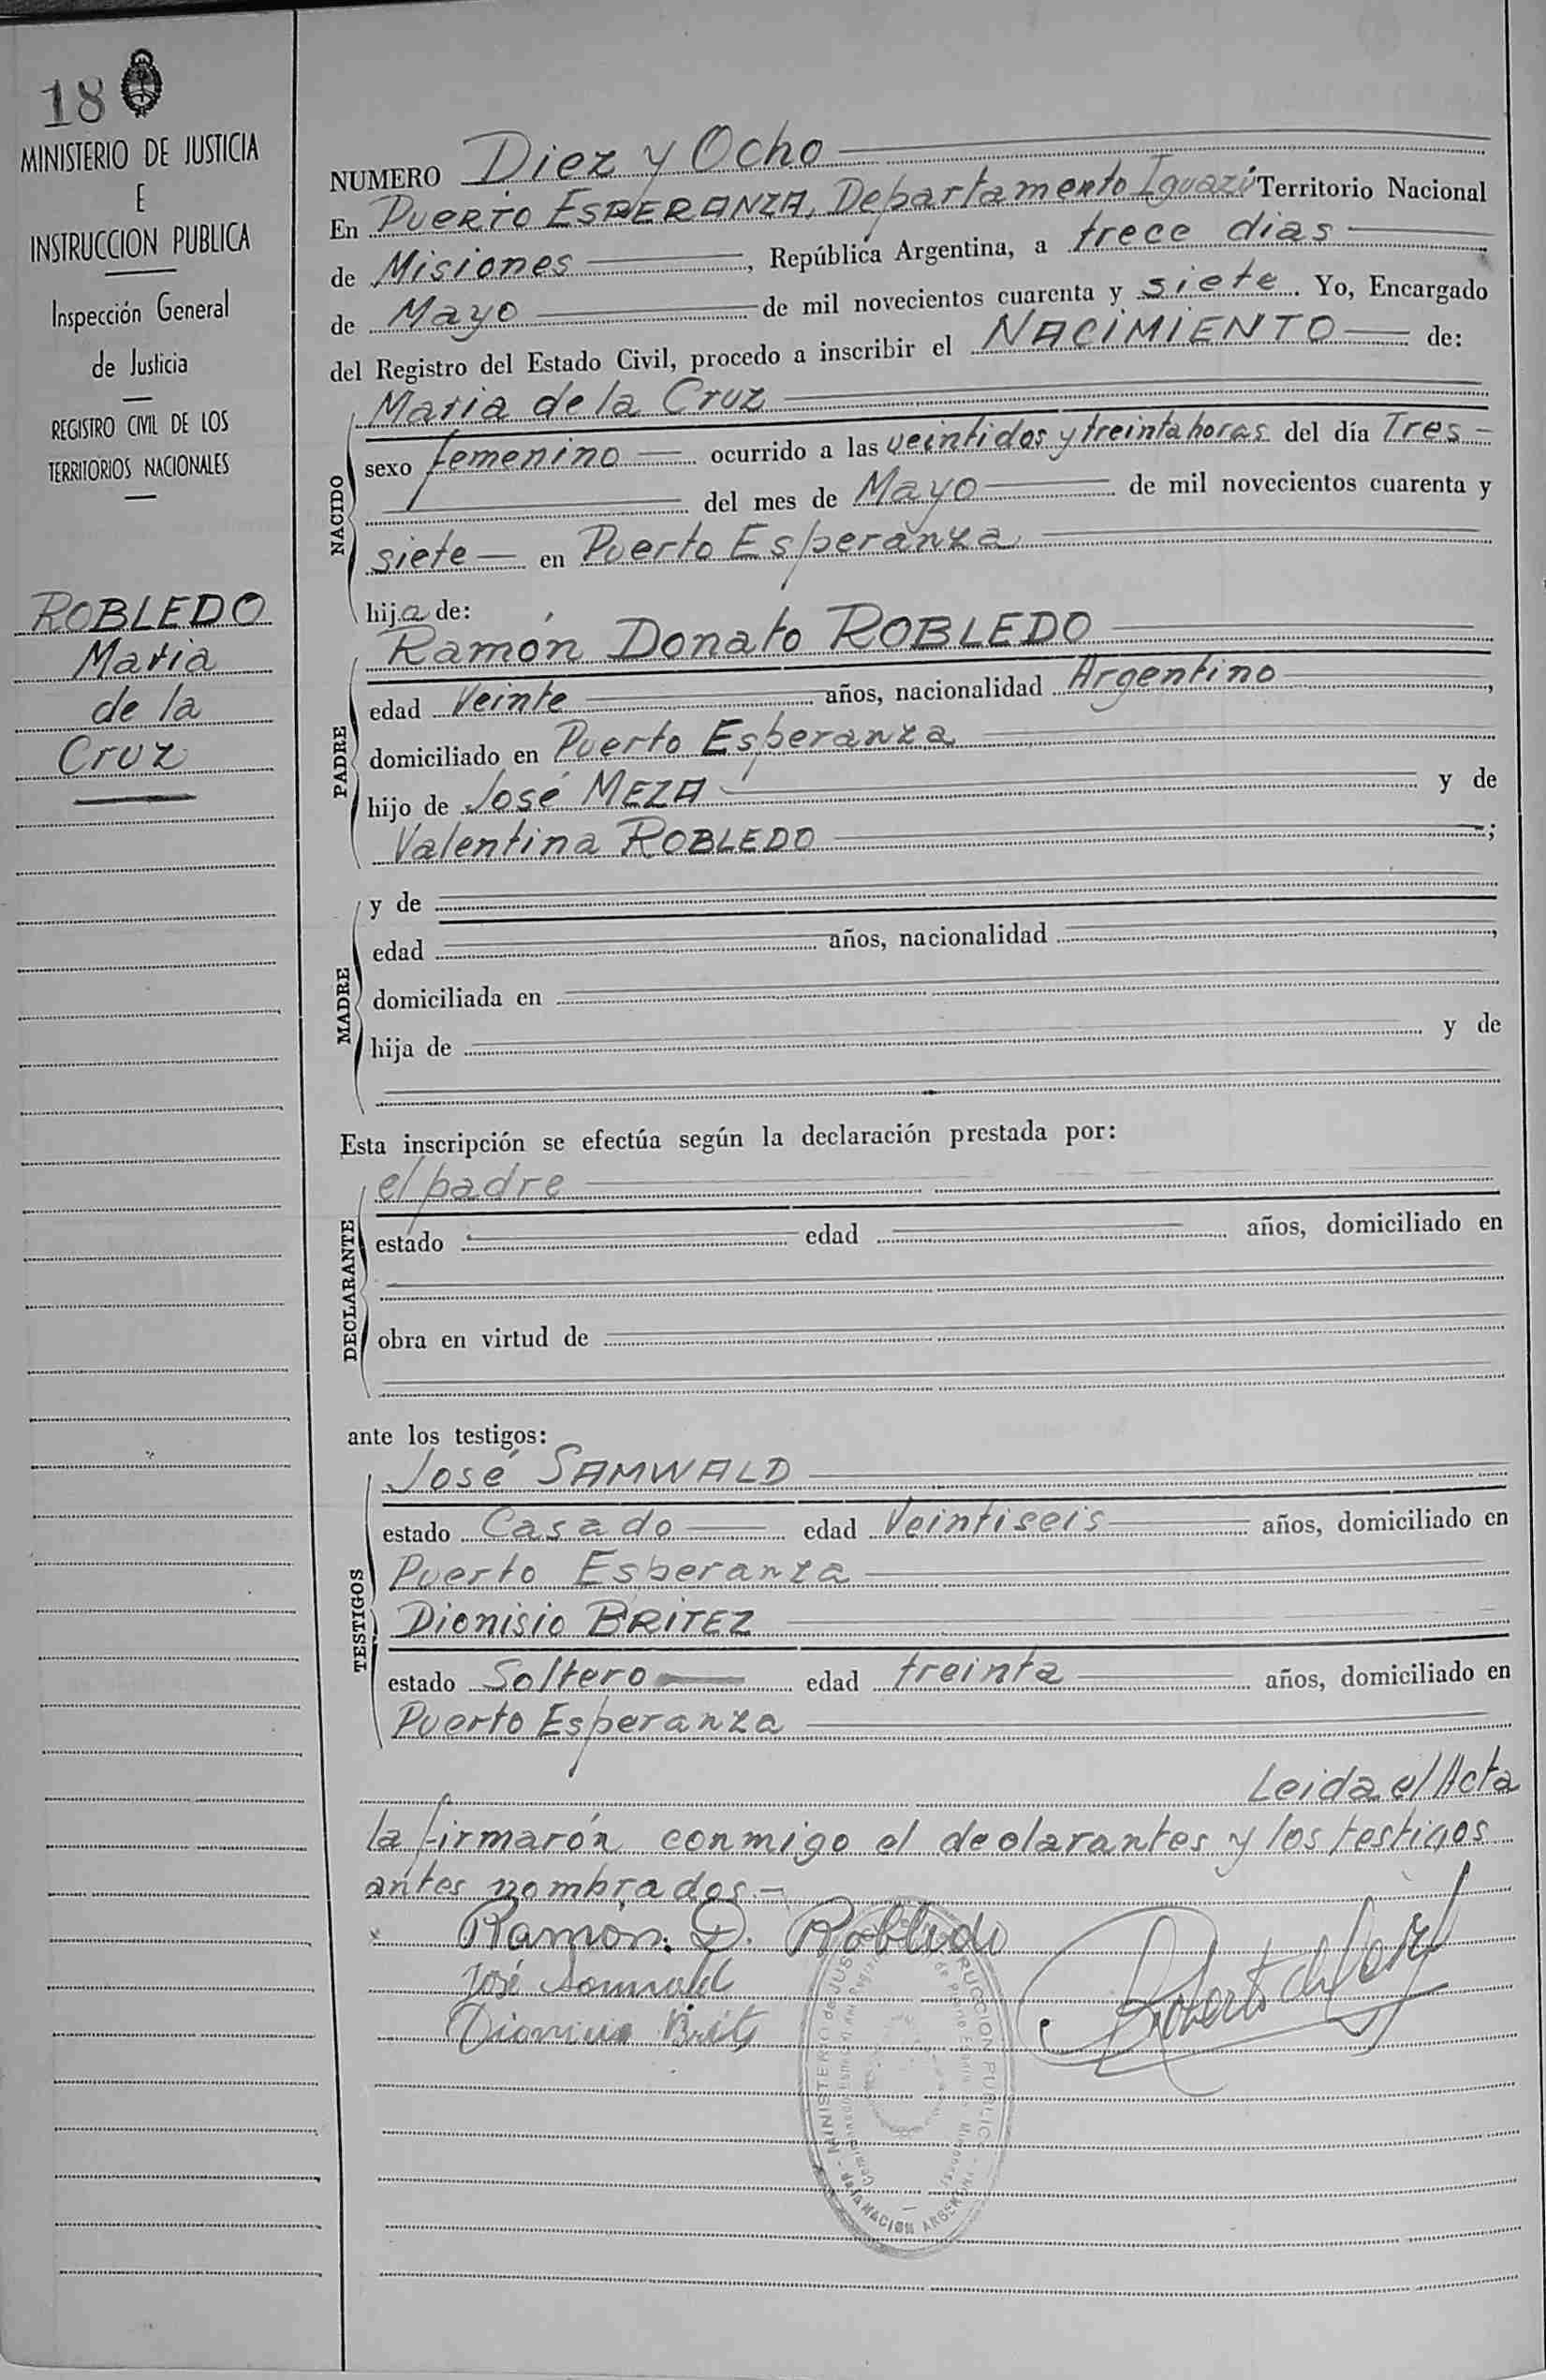 18
MINISTERIO DE JUSTICIA
E
INSTRUCCION PUBLICA
Inspección General
de Justicia
REGISTRO CIVIL DE LOS
TERRITORIOS NACIONALES
ROBLEDO
Maria
de la
Cruz
NUMERO Diez y Ocho
En PUERTO ESPERANZA, Departamento Iguazú Territorio Nacional
de Misiones, República Argentina, a trece dias
de Mayo de mil novecientos cuarenta y siete. Yo, Encargado
del Registro del Estado Civil, procedo a inscribir el NACIMIENTO de:
NACIDO
Maria de la Cruz
sexo femenino ocurrido a las veintidos y treinta horas del día Tres
del mes de Mayo de mil novecientos cuarenta y
siete en Puerto Esperanza
hija de:
PADRE
Ramón Donato ROBLEDO
edad Veinte años, nacionalidad Argentino,
domiciliado en Puerto Esperanza
hijo de José MEZA y de
Valentina ROBLEDO;
MADRE
y de
edad años, nacionalidad,
domiciliada en
hija de y de
Esta inscripción se efectúa según la declaración prestada por:
DECLARANTE
el padre
estado edad años, domiciliado en
obra en virtud de
ante los testigos:
TESTIGOS
José SAMWALD
estado Casado edad Veintiseis años, domiciliado en
Puerto Esperanza
Dionisio BRITEZ
estado Soltero edad treinta años, domiciliado en
Puerto Esperanza
Leida el Acta
la firmarón conmigo el declarantes y los testigos
antes nombrados.-
Ramón. D. Robledo
José Samwald
MINISTERIO de JUSTICIA INSTRUCCION PUBLICA
de la NACION ARGENTINA